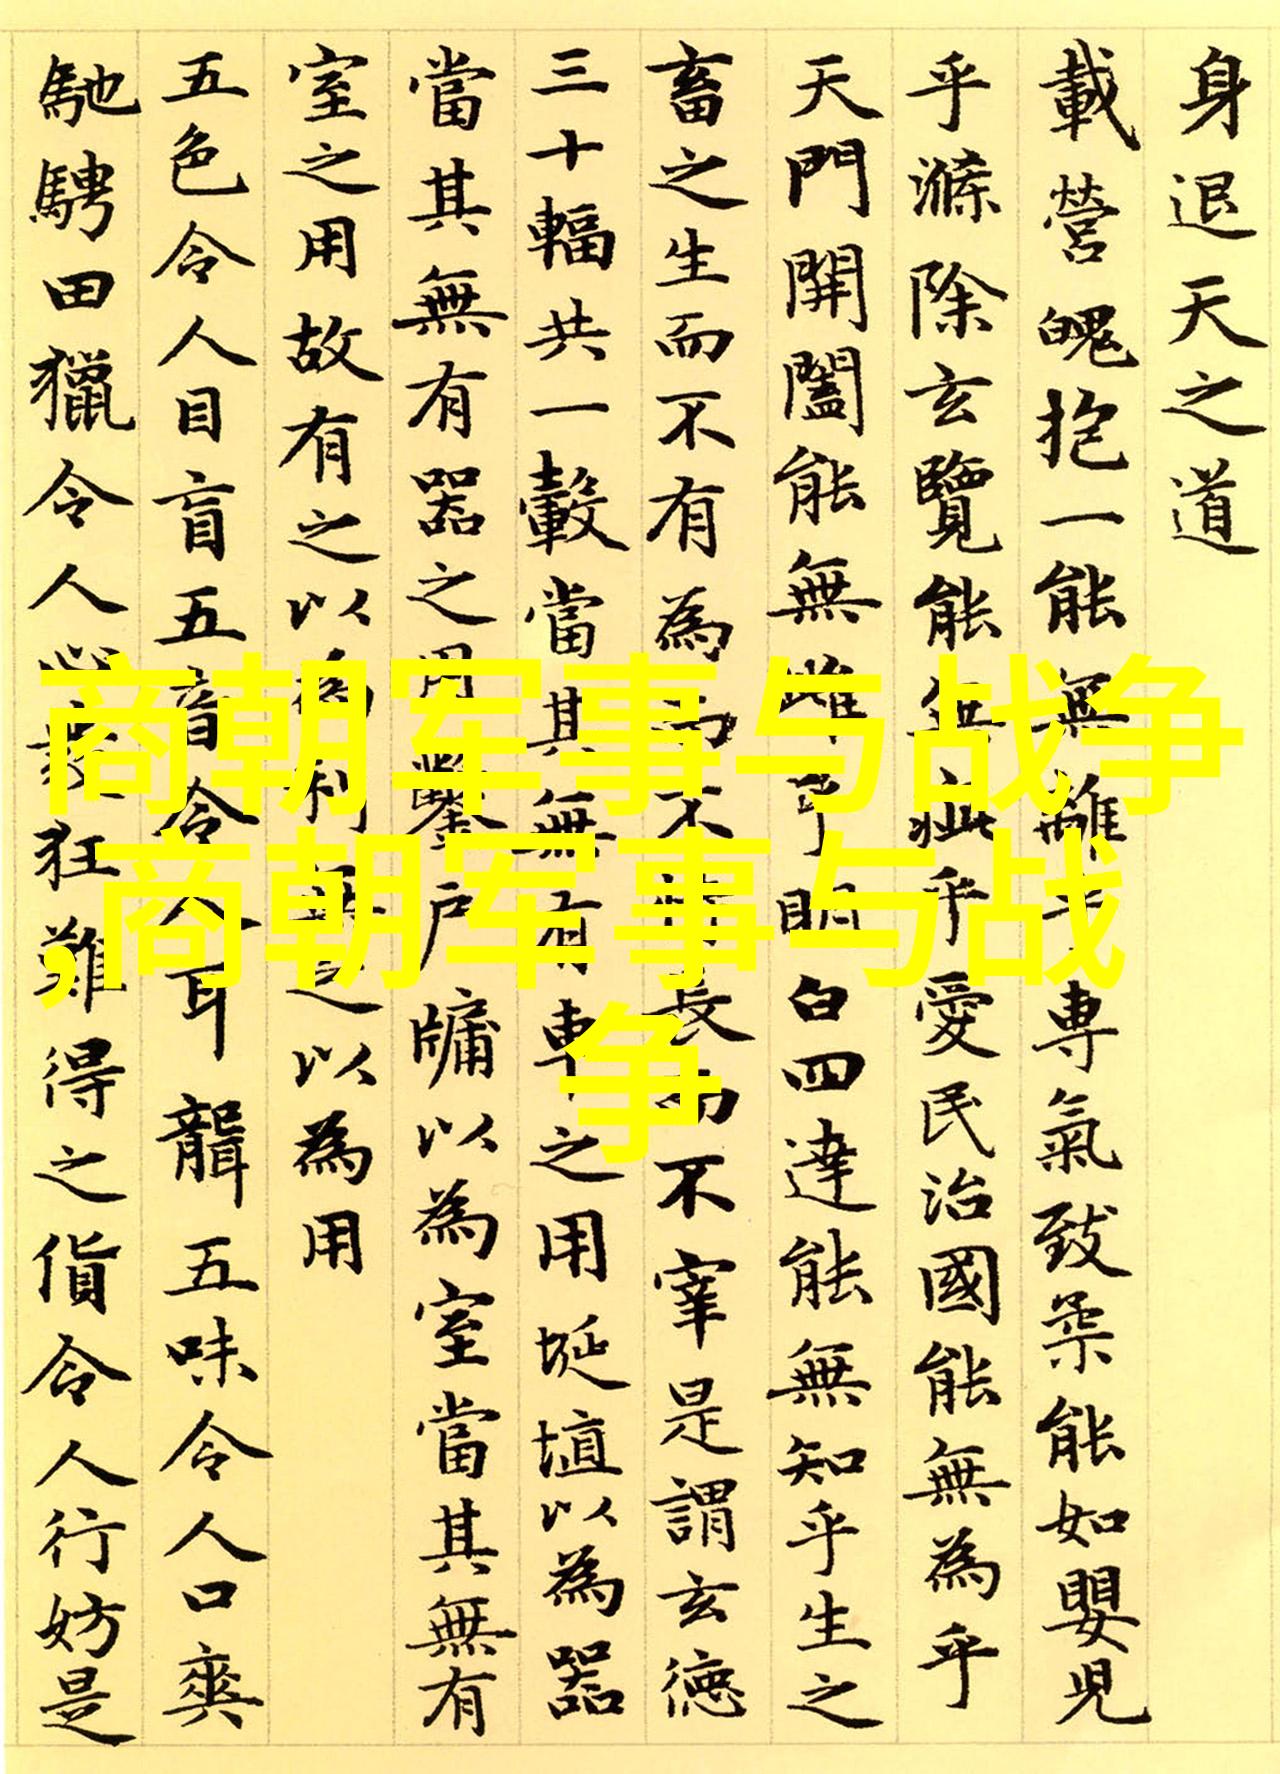 身退天之道
載營魄抱一能無離乎專氣致柔能如嬰兒
乎滌除玄覽能無疵乎愛民治國能無為乎
天門開闔能無雌乎明白四達能無知乎生之
畜之生而不有為而不恃長而不宰是謂玄德
三十輻共一轂當其無有車之用埏埴以為器
當其無有器之用鑿戶牖以為室當其無有
室之用故有之以為利無之以為用
五色令人目盲五音令人耳聾五味令人口爽
馳騁田獵令人心發狂難得之貨令人行妨是
商朝军事与战争
,商朝军事与战
争